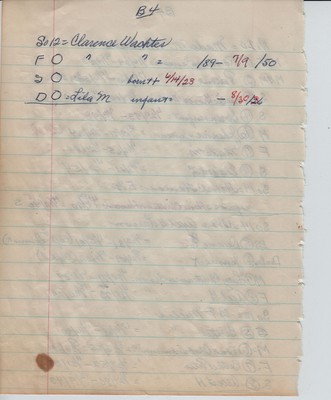 B4
So 12 = Clarence Wachter
F O " " = /89- 7/9 /50
S O 4/14/23
D O = Lila M infant = - 8/30/